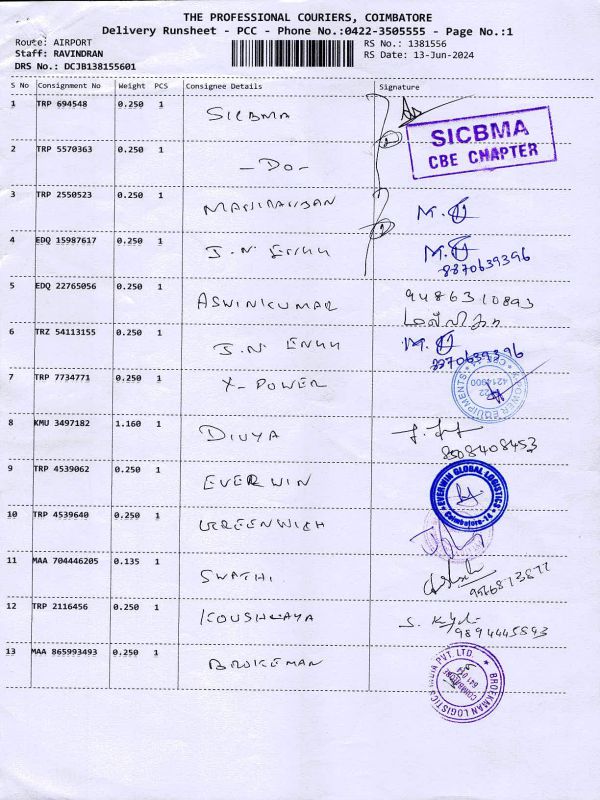 THE PROFESSIONAL COURIERS, COIMBATORE
Delivery Runsheet - PCC - Phone No.:0422-3505555 - Page No.:1
Route: AIRPORT RS No.: 1381556
Staff: RAVINDRAN RS Date: 13-Jun-2024
DRS No.: DCJB138155601
S No Consignment No Weight PCS Consignee Details Signature
1 TRP 694548 0.250 1 SICBMA
SICBMA
CBE CHAPTER
2 TRP 5570363 0.250 1 - DO -
3 TRP 2550523 0.250 1
4 EDQ 15987617 0.250 1 J.N
8870639396
5 EDQ 22765056 0.250 1 ASWINKUMAR 9486310893
6 TRZ 54113155 0.250 1 J.N
8870639396
7 TRP 7734771 0.250 1 X-POWER
8 KMU 3497182 1.160 1 DIVYA
8508408453
9 TRP 4539062 0.250 1 EVERWIN
EVERWIN GLOBAL LOGISTICS
Coimbatore-14
10 TRP 4539640 0.250 1 GREENWICH
11 MAA 704446205 0.135 1 SWATHI
12 TRP 2116456 0.250 1 KOUSHLAYA
9894445593
13 MAA 865993493 0.250 1
BROEKMAN LOGISTICS INDIA PVT. LTD.
COIMBATORE
641 014